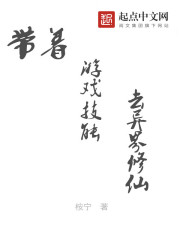 起点
起点中文网
阅文集团旗下网站
带着
游戏技能
去异界修仙
桉宁 著